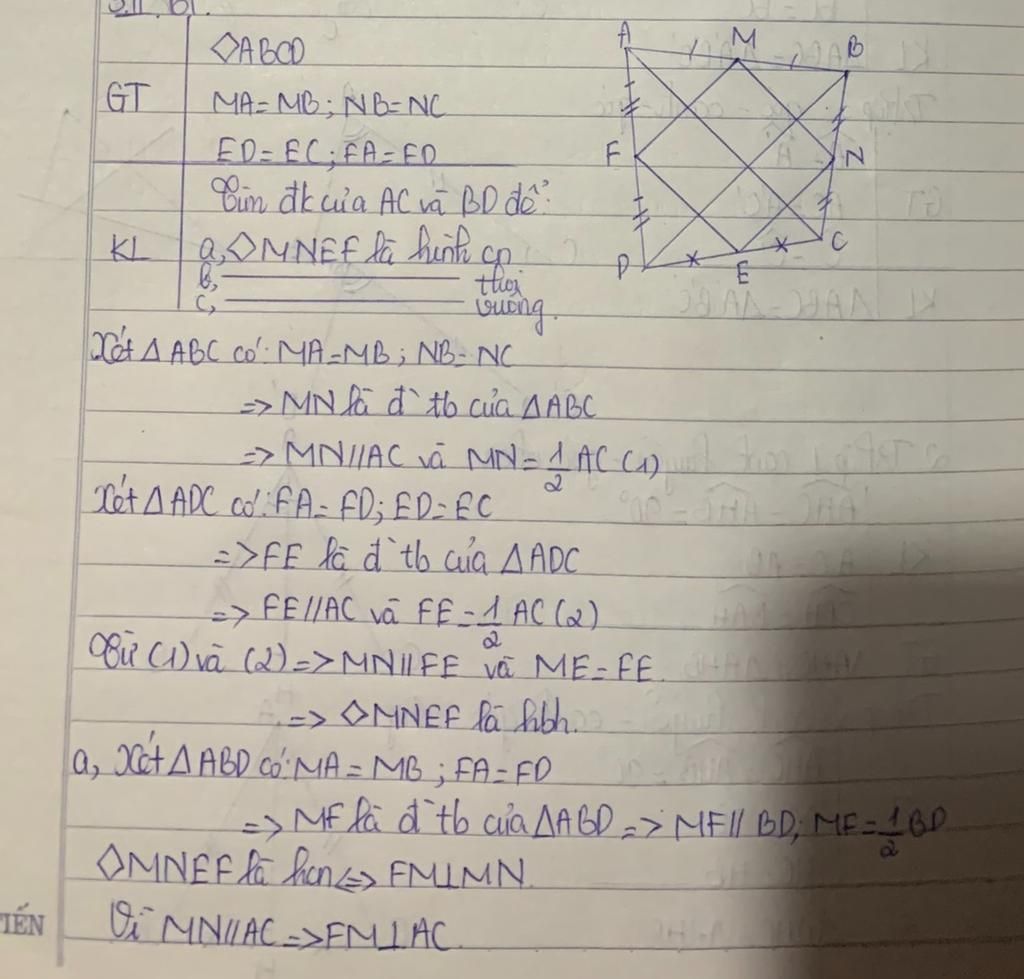 ◇ABCD
GT
MA=MB; NB=NC
ED=EC; FA=FD
Tìm đk của AC và BD để:
KL
a, ◇MNEF là hình cn
b, thoi
c, vuông.
A M B
F N
D E C
Xét ΔABC có: MA=MB; NB=NC
=> MN là đ` tb của ΔABC
=> MN//AC và MN=1/2 AC (1)
Xét ΔADC có: FA=FD; ED=EC
=> FE là đ` tb của ΔADC
=> FE//AC và FE=1/2 AC (2)
Từ (1) và (2) => MN//FE và ME=FE.
=> ◇MNEF là hbh.
a, Xét ΔABD có: MA=MB; FA=FD
=> MF là đ` tb của ΔABD => MF//BD; MF=1/2 BD
◇MNEF là hcn <=> FM⊥MN.
Vì MN//AC => FM⊥AC.
TIẾN